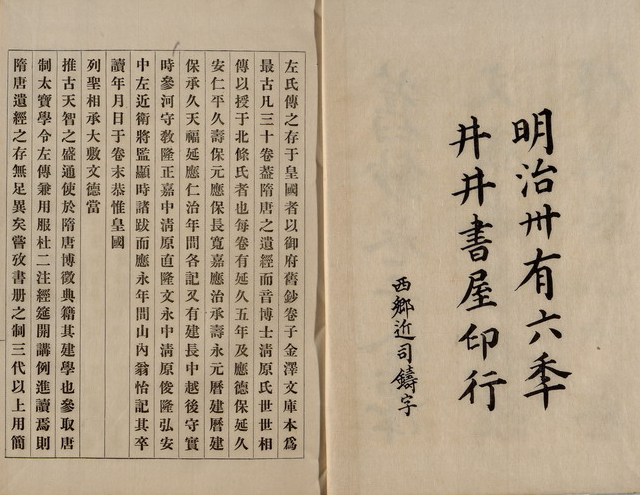 明治卅有六年
井井書屋印行
西鄉近司鑄字
左氏傳之存于皇國者以御府舊鈔卷子金澤文庫本為
最古凡三十卷蓋隋唐之遺經而音博士清原氏世世相
傳以授于北條氏者也每卷有延久五年及應德保延久
安仁平久壽保元應保長寬嘉應治承壽永元曆建曆建
保承久天福延應仁治年間各記又有建長中越後守實
時參河守敎隆正嘉中清原直隆文永中清原俊隆弘安
中左近衛將監顯時諸跋而應永年間山內翁怡記其卒
讀年月日于卷末恭惟皇國
列聖相承大敷文德當
推古天智之盛通使於隋唐博徵典籍其建學也參取唐
制太寶學令左傳兼用服杜二注經筵開講例進讀焉則
隋唐遺經之存無足異矣嘗攷書册之制三代以上用簡